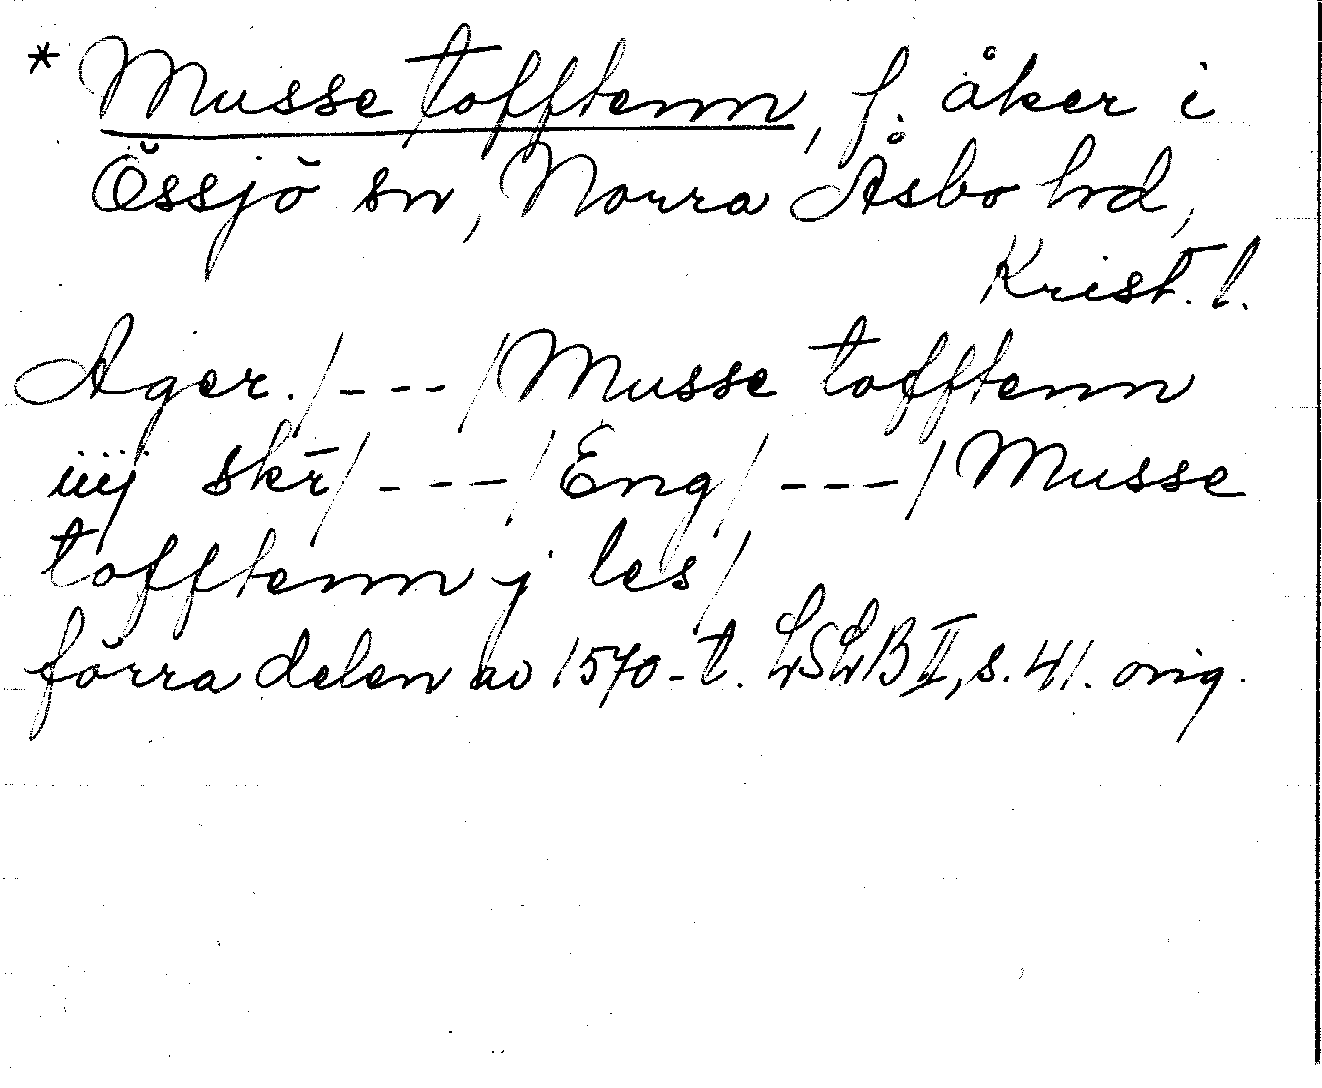 * Musse tofftenn, f. åker i
Össjö sn, Norra Åsbo hd,
Krist. l.
Ager. /---/ Musse tofftenn
iiij skr̄ /---/ Eng /---/ Musse
tofftenn j les /
förra delen av 1570-t. LSLB II, s. 41. orig.